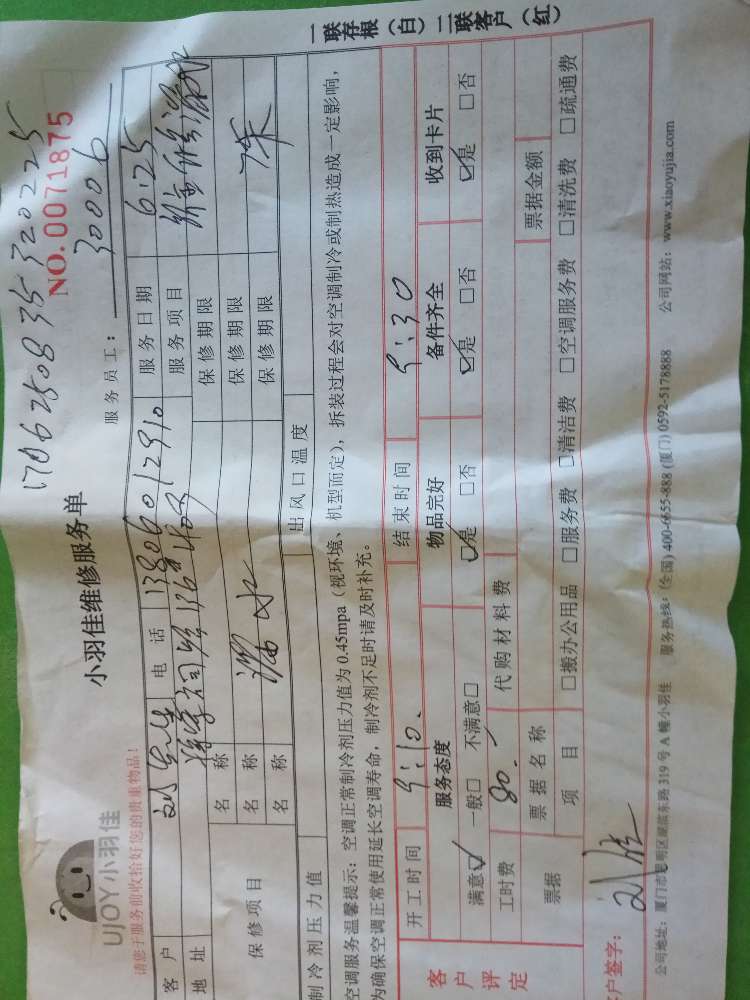 17062508353 20225
UJOY小羽佳
小羽佳维修服务单
NO.0071875
请您于服务前收拾好您的贵重物品!
服务员工: 30006
客户 电话 13806012910 服务日期 6.25
地址 服务项目
保修项目 名称 保修期限
名称 保修期限
名称 漏水 保修期限
制冷剂压力值 出风口温度
空调服务温馨提示:空调正常制冷剂压力值为0.45mpa(视环境、机型而定),拆装过程会对空调制冷或制热造成一定影响,
为确保空调正常使用延长空调寿命,制冷剂不足时请及时补充。
客户评定
开工时间 9:10. 结束时间 9:30
服务态度 物品完好 备件齐全 收到卡片
满意☑ 一般□ 不满意□ ☑是 □否 ☑是 □否 ☑是 □否
工时费 80.- 代购材料费
票据 票据名称 票据金额
项目 □搬办公用品 □服务费 □清洁费 □空调服务费 □清洗费 □疏通费
客户签字:
公司地址:厦门市思明区湖滨东路319号A幢小羽佳 服务热线:(全国)400-6655-888 (厦门)0592-5178888 公司网站:www.xiaoyujia.com
一联存根(白)二联客户(红)